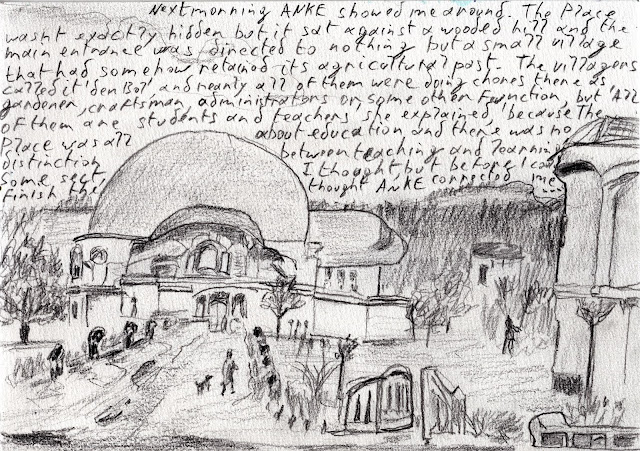 Next morning ANKE showed me around. The Place
wasn't exactly hidden but it sat against a wooded hill and the
main entrance was directed to nothing but a small village
that had somehow retained its agricultural past. The villagers
called it 'den Bol' and nearly all of them were doing chores there as
gardener, craftsman, administrators or some other function, but 'All
of them are students and teachers' she explained, because The
Place was all about education and there was no
distinction between teaching and learning
Some sect I thought, but before I could
finish the thought ANKE corrected me...